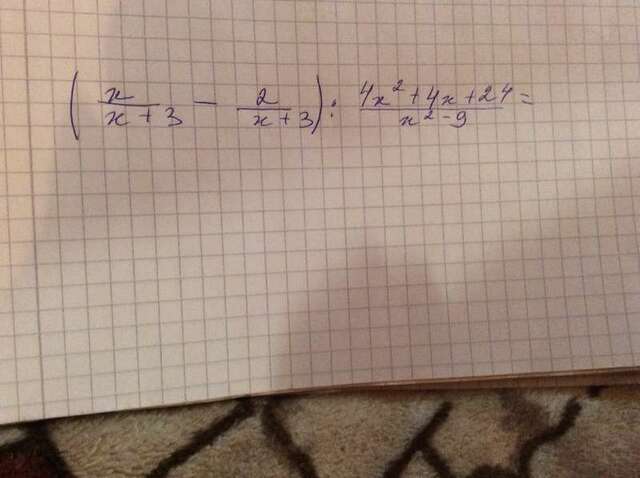 ( x/(x + 3) − 2/(x + 3) ) : (4x² + 4x + 24)/(x² − 9) =